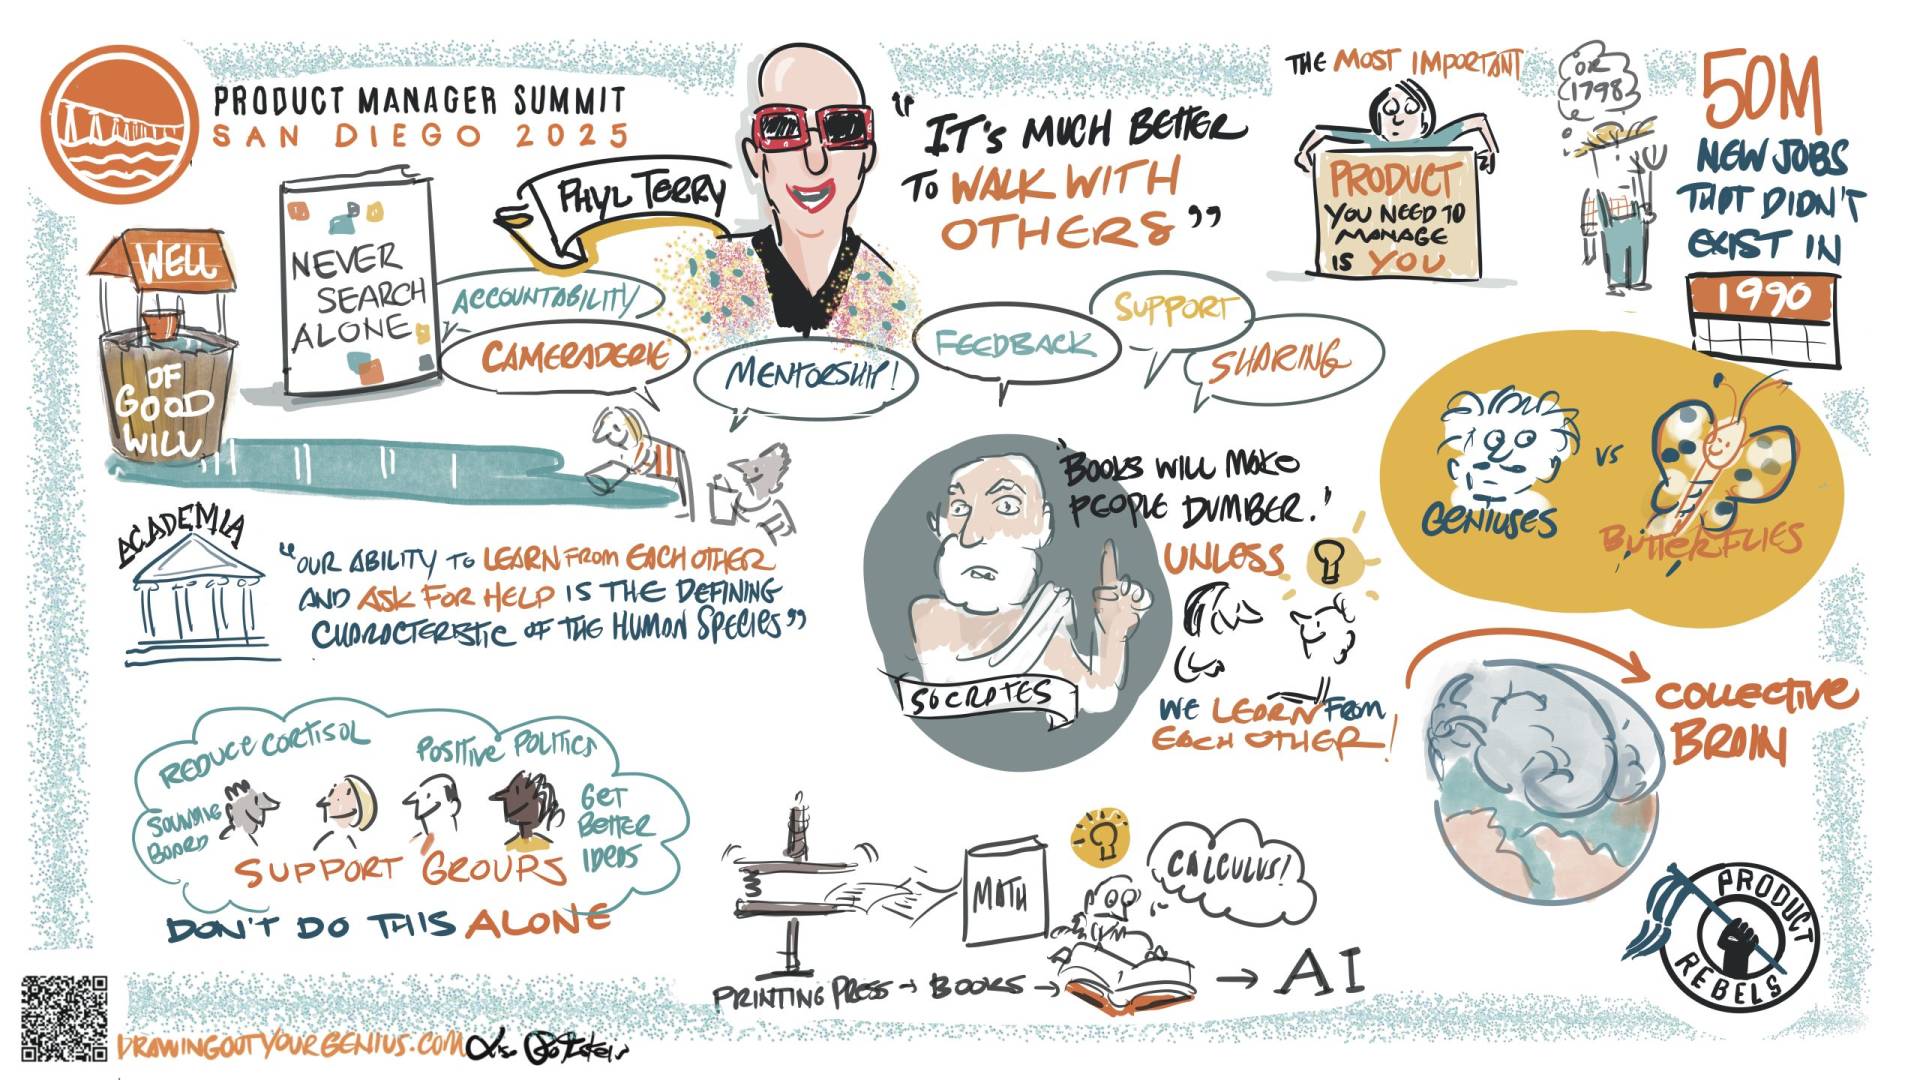 PRODUCT MANAGER SUMMIT
SAN DIEGO 2025
PHYL TERRY
"IT'S MUCH BETTER
TO WALK WITH
OTHERS"
THE MOST IMPORTANT
PRODUCT
YOU NEED TO
MANAGE
IS YOU
OR
1798
50M
NEW JOBS
THAT DIDN'T
EXIST IN
1990
WELL
OF
GOOD
WILL
NEVER
SEARCH
ALONE
ACCOUNTABILITY
CAMERADERIE
MENTORSHIP!
FEEDBACK
SUPPORT
SHARING
GENIUSES
VS
BUTTERFLIES
"BOOKS WILL MAKE
PEOPLE DUMBER."
UNLESS
WE LEARN FROM
EACH OTHER!
SOCRATES
ACADEMIA
"OUR ABILITY TO LEARN FROM EACH OTHER
AND ASK FOR HELP IS THE DEFINING
CHARACTERISTIC OF THE HUMAN SPECIES"
COLLECTIVE
BRAIN
REDUCE CORTISOL
POSITIVE POLITICS
SOUNDING
BOARD
GET
BETTER
IDEAS
SUPPORT GROUPS
DON'T DO THIS ALONE
MATH
CALCULUS!
PRINTING PRESS → BOOKS → → AI
PRODUCT
REBELS
DRAWINGOUTYOURGENIUS.COM